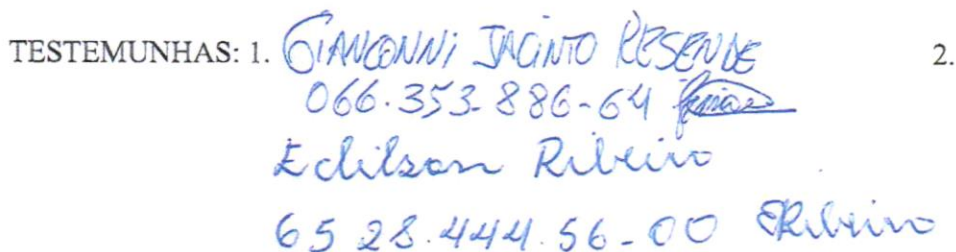 TESTEMUNHAS: 1. GIANCONNI JACINTO RESENDE 2.
066.353.886-64
Edilson Ribeiro
65 28.444.56-00 ERibeiro